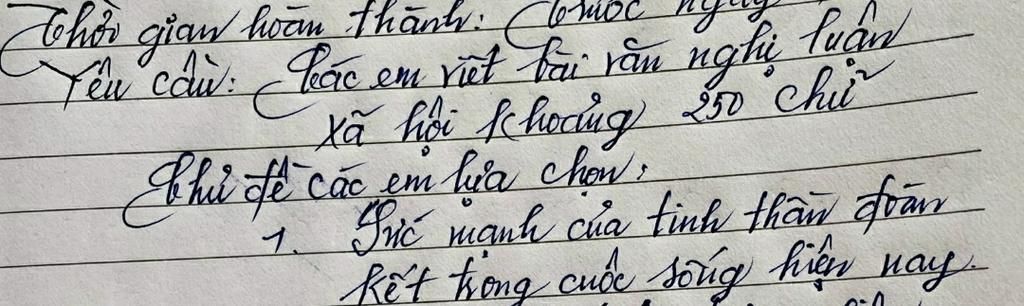 Thời gian hoàn thành: Trước ngày
Yêu cầu: Các em viết bài văn nghị luận
xã hội khoảng 250 chữ
Chủ đề các em lựa chọn:
1. Sức mạnh của tinh thần đoàn
kết trong cuộc sống hiện nay.